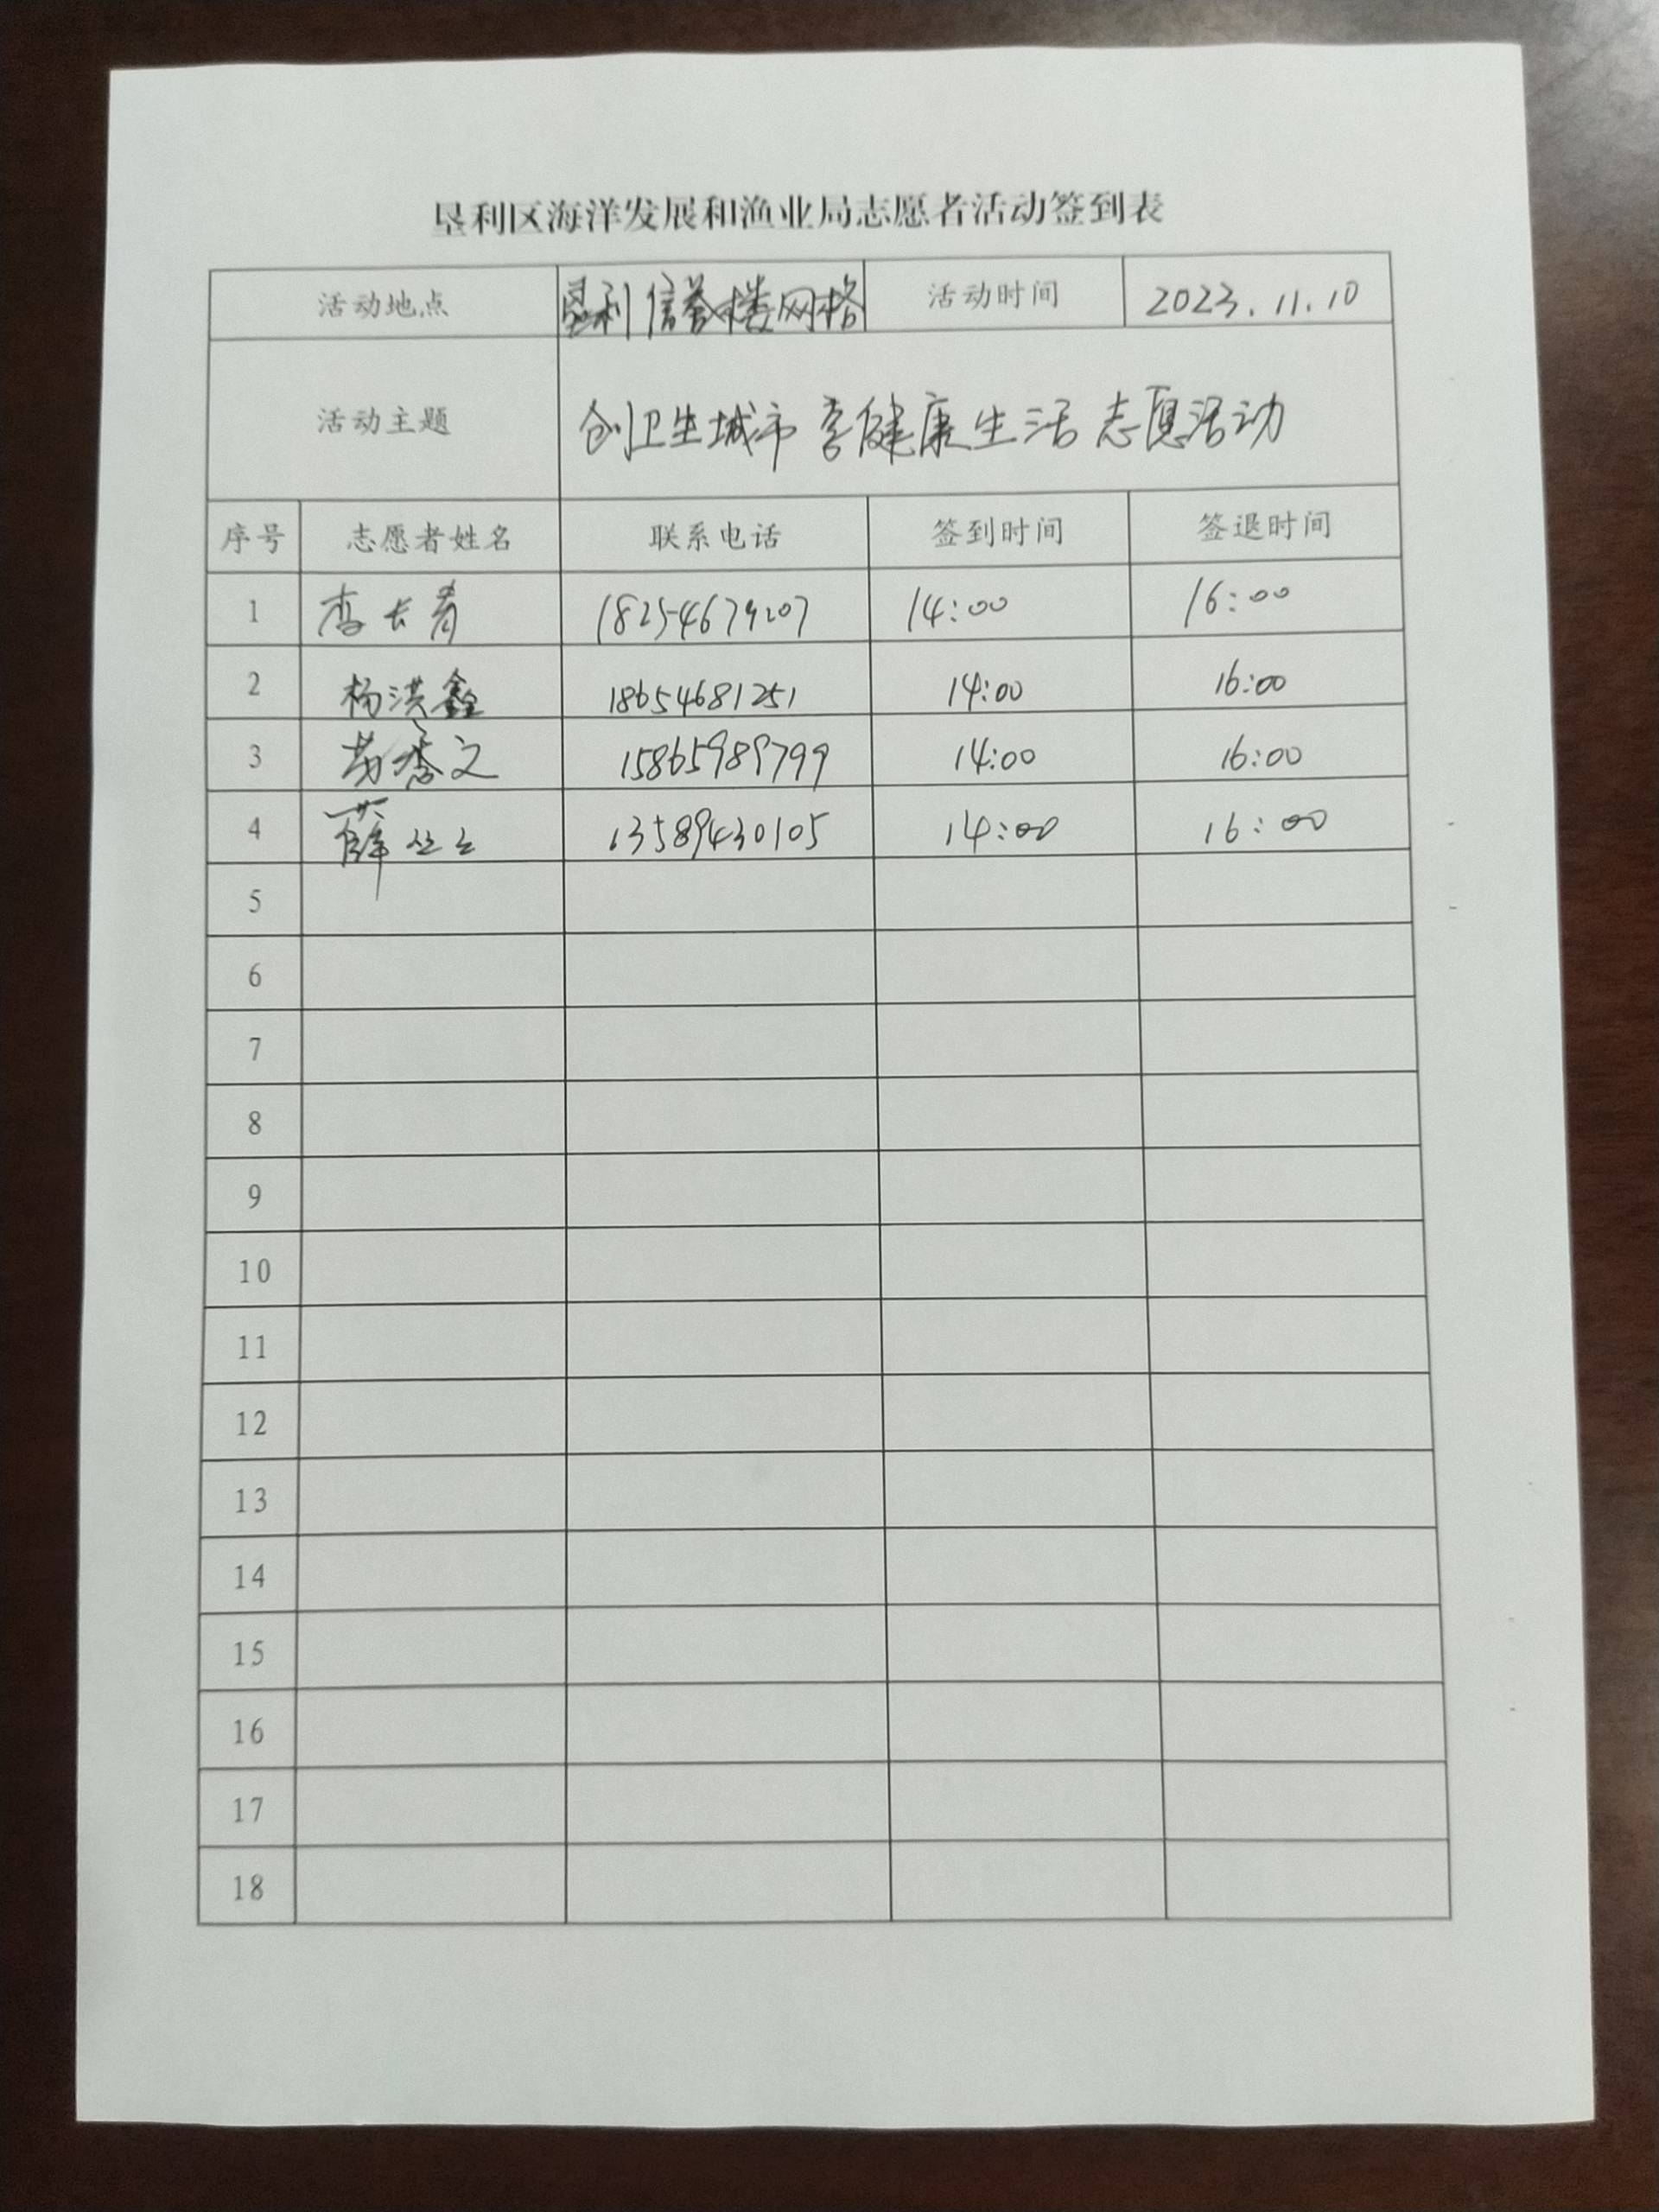 垦利区海洋发展和渔业局志愿者活动签到表
活动地点 垦利信誉楼网格 活动时间 2023.11.10
活动主题 创卫生城市 享健康生活 志愿活动
序号 志愿者姓名 联系电话 签到时间 签退时间
1 李长青 18254679207 14:00 16:00
2 杨洪鑫 18654681251 14:00 16:00
3 苟秀文 15865989799 14:00 16:00
4 薛 13589430105 14:00 16:00
5
6
7
8
9
10
11
12
13
14
15
16
17
18